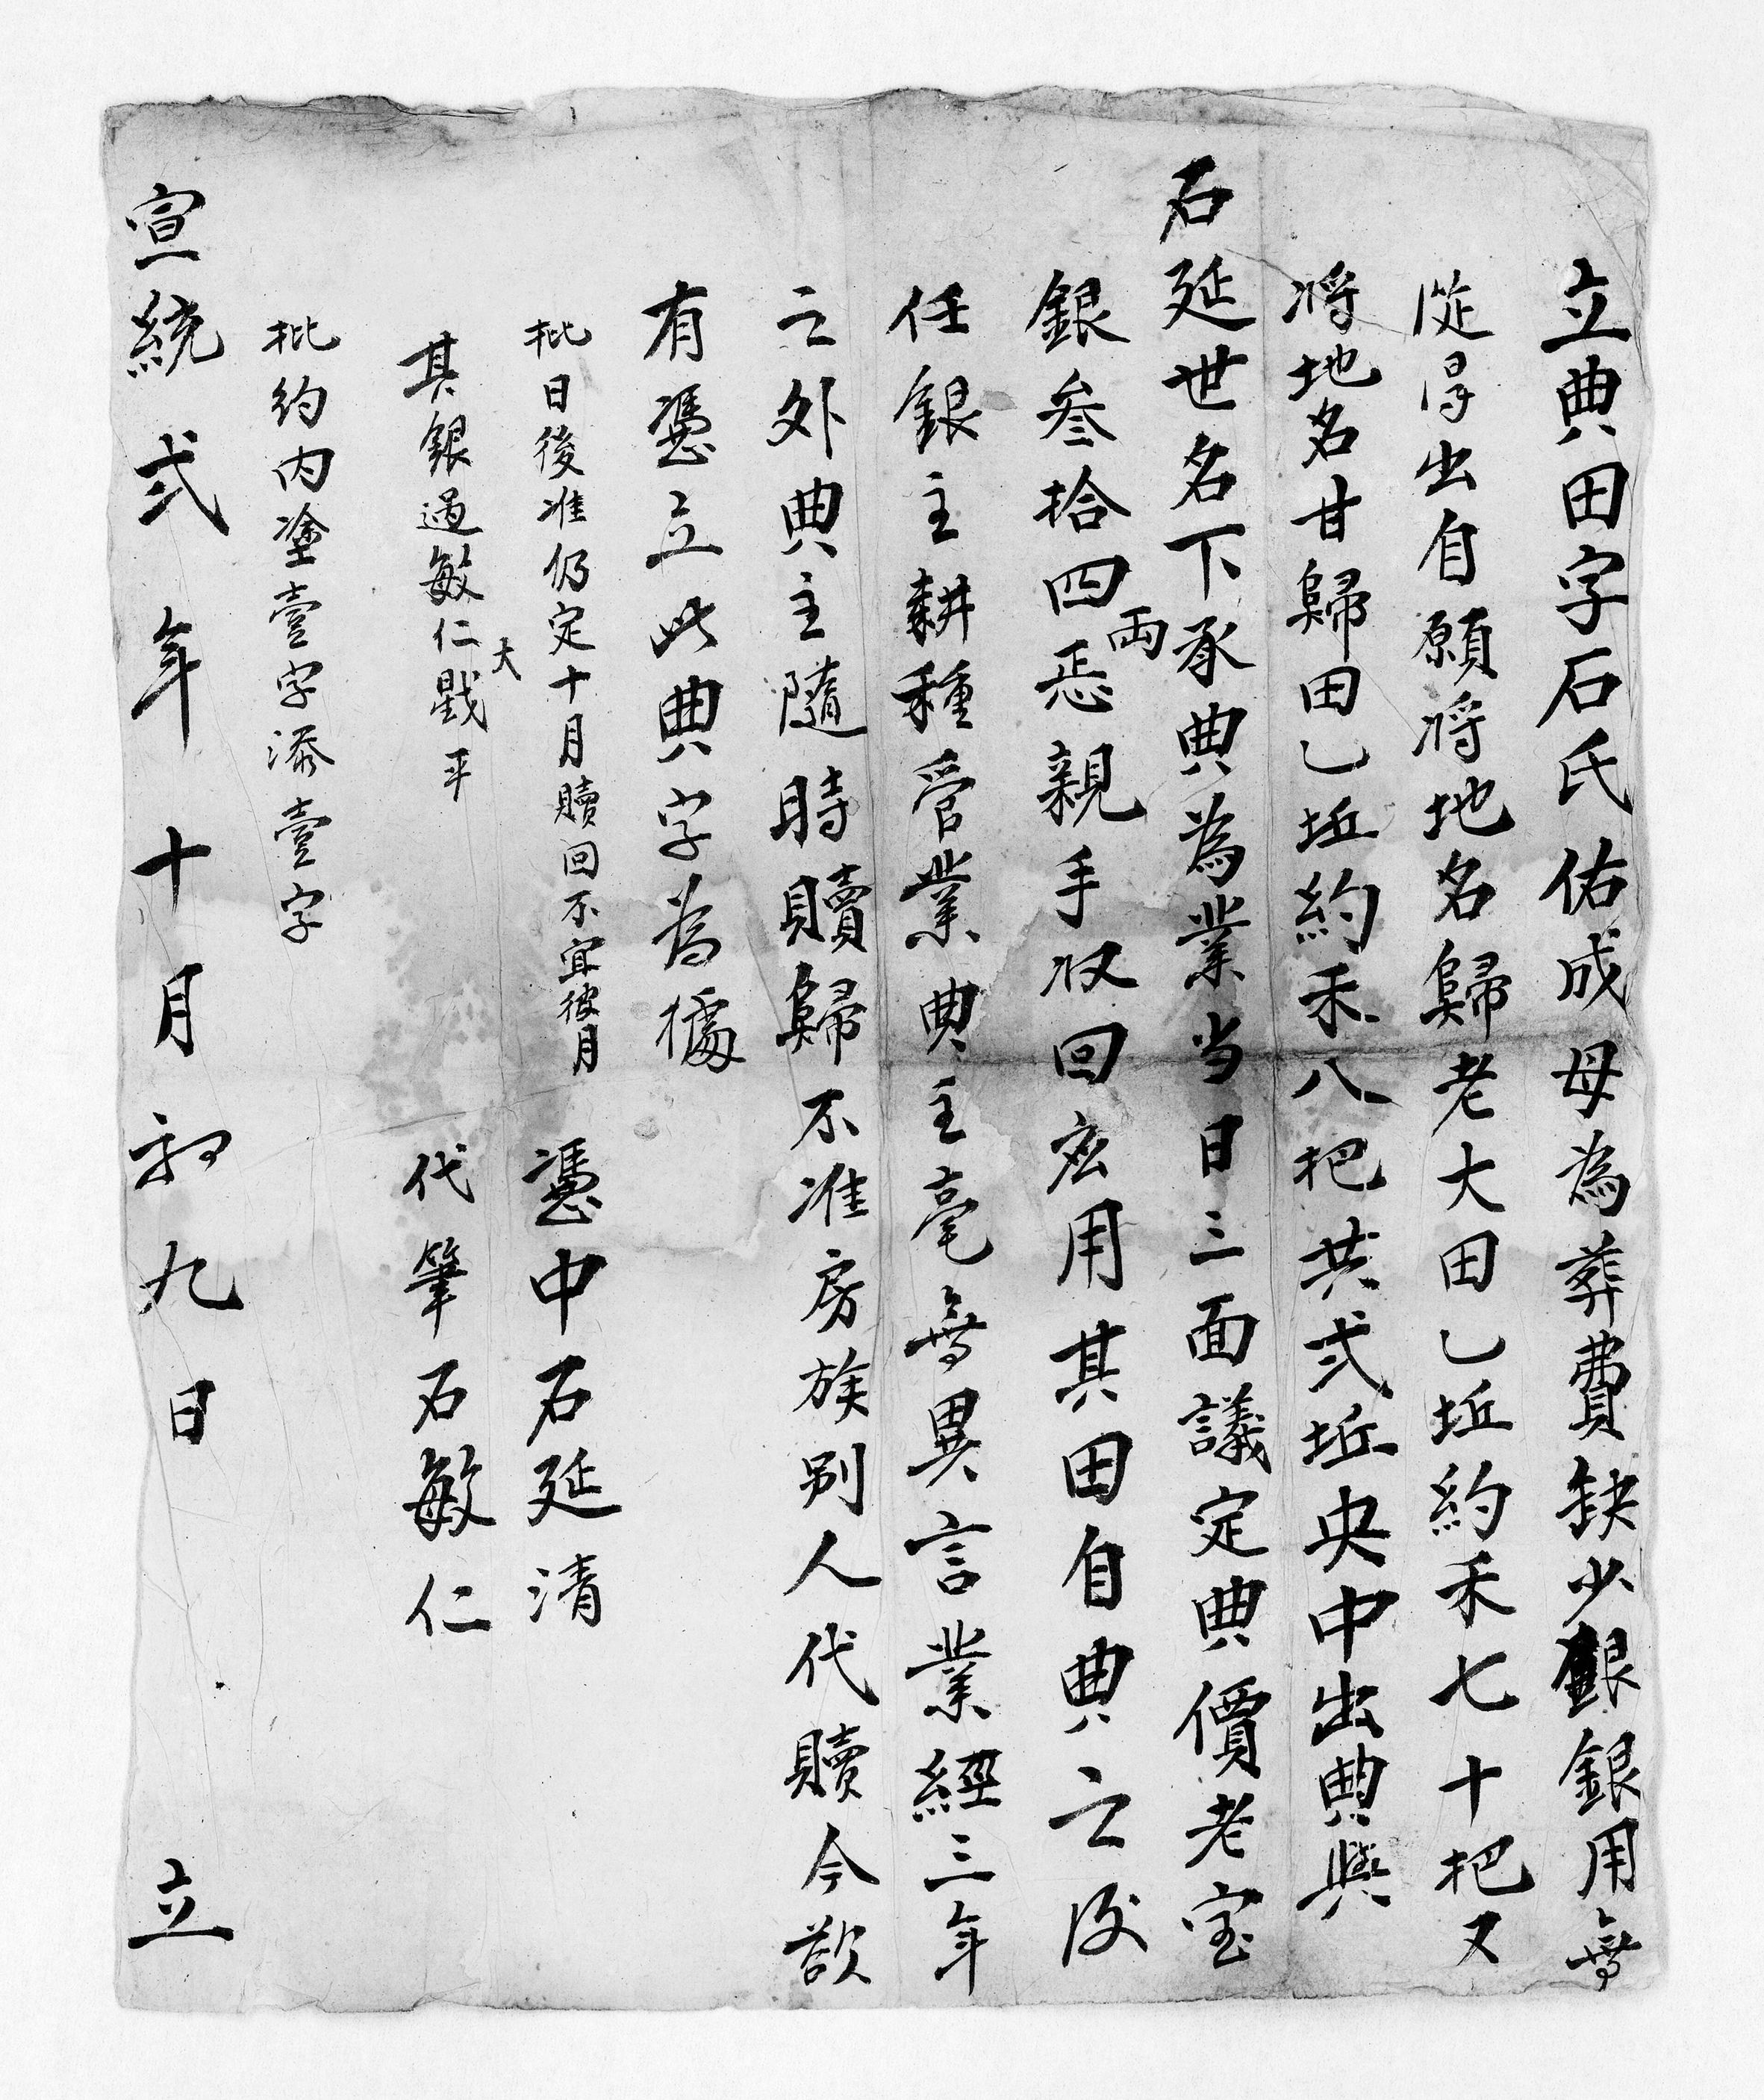 立典田字石氏佑成母為葬費缺少銀用無
從得出自願将地名歸老大田乚坵約禾七十把又
将地名甘歸田乚坵約禾八把共弍坵央中出典與
石延世名下承典為業当日三面議定典價老宝
銀叁拾四両恧親手收回应用其田自典之後
任銀主耕種管業典主毫無異言業經三年
之外典主隨時贖歸不准房族別人代贖今欲
有憑立此典字為據
批日後准仍定十月贖回不宜彼月
憑中石延清
其銀過敏仁大戥平
代筆石敏仁
批約内塗壹字添壹字
宣統弍年十月初九日 立